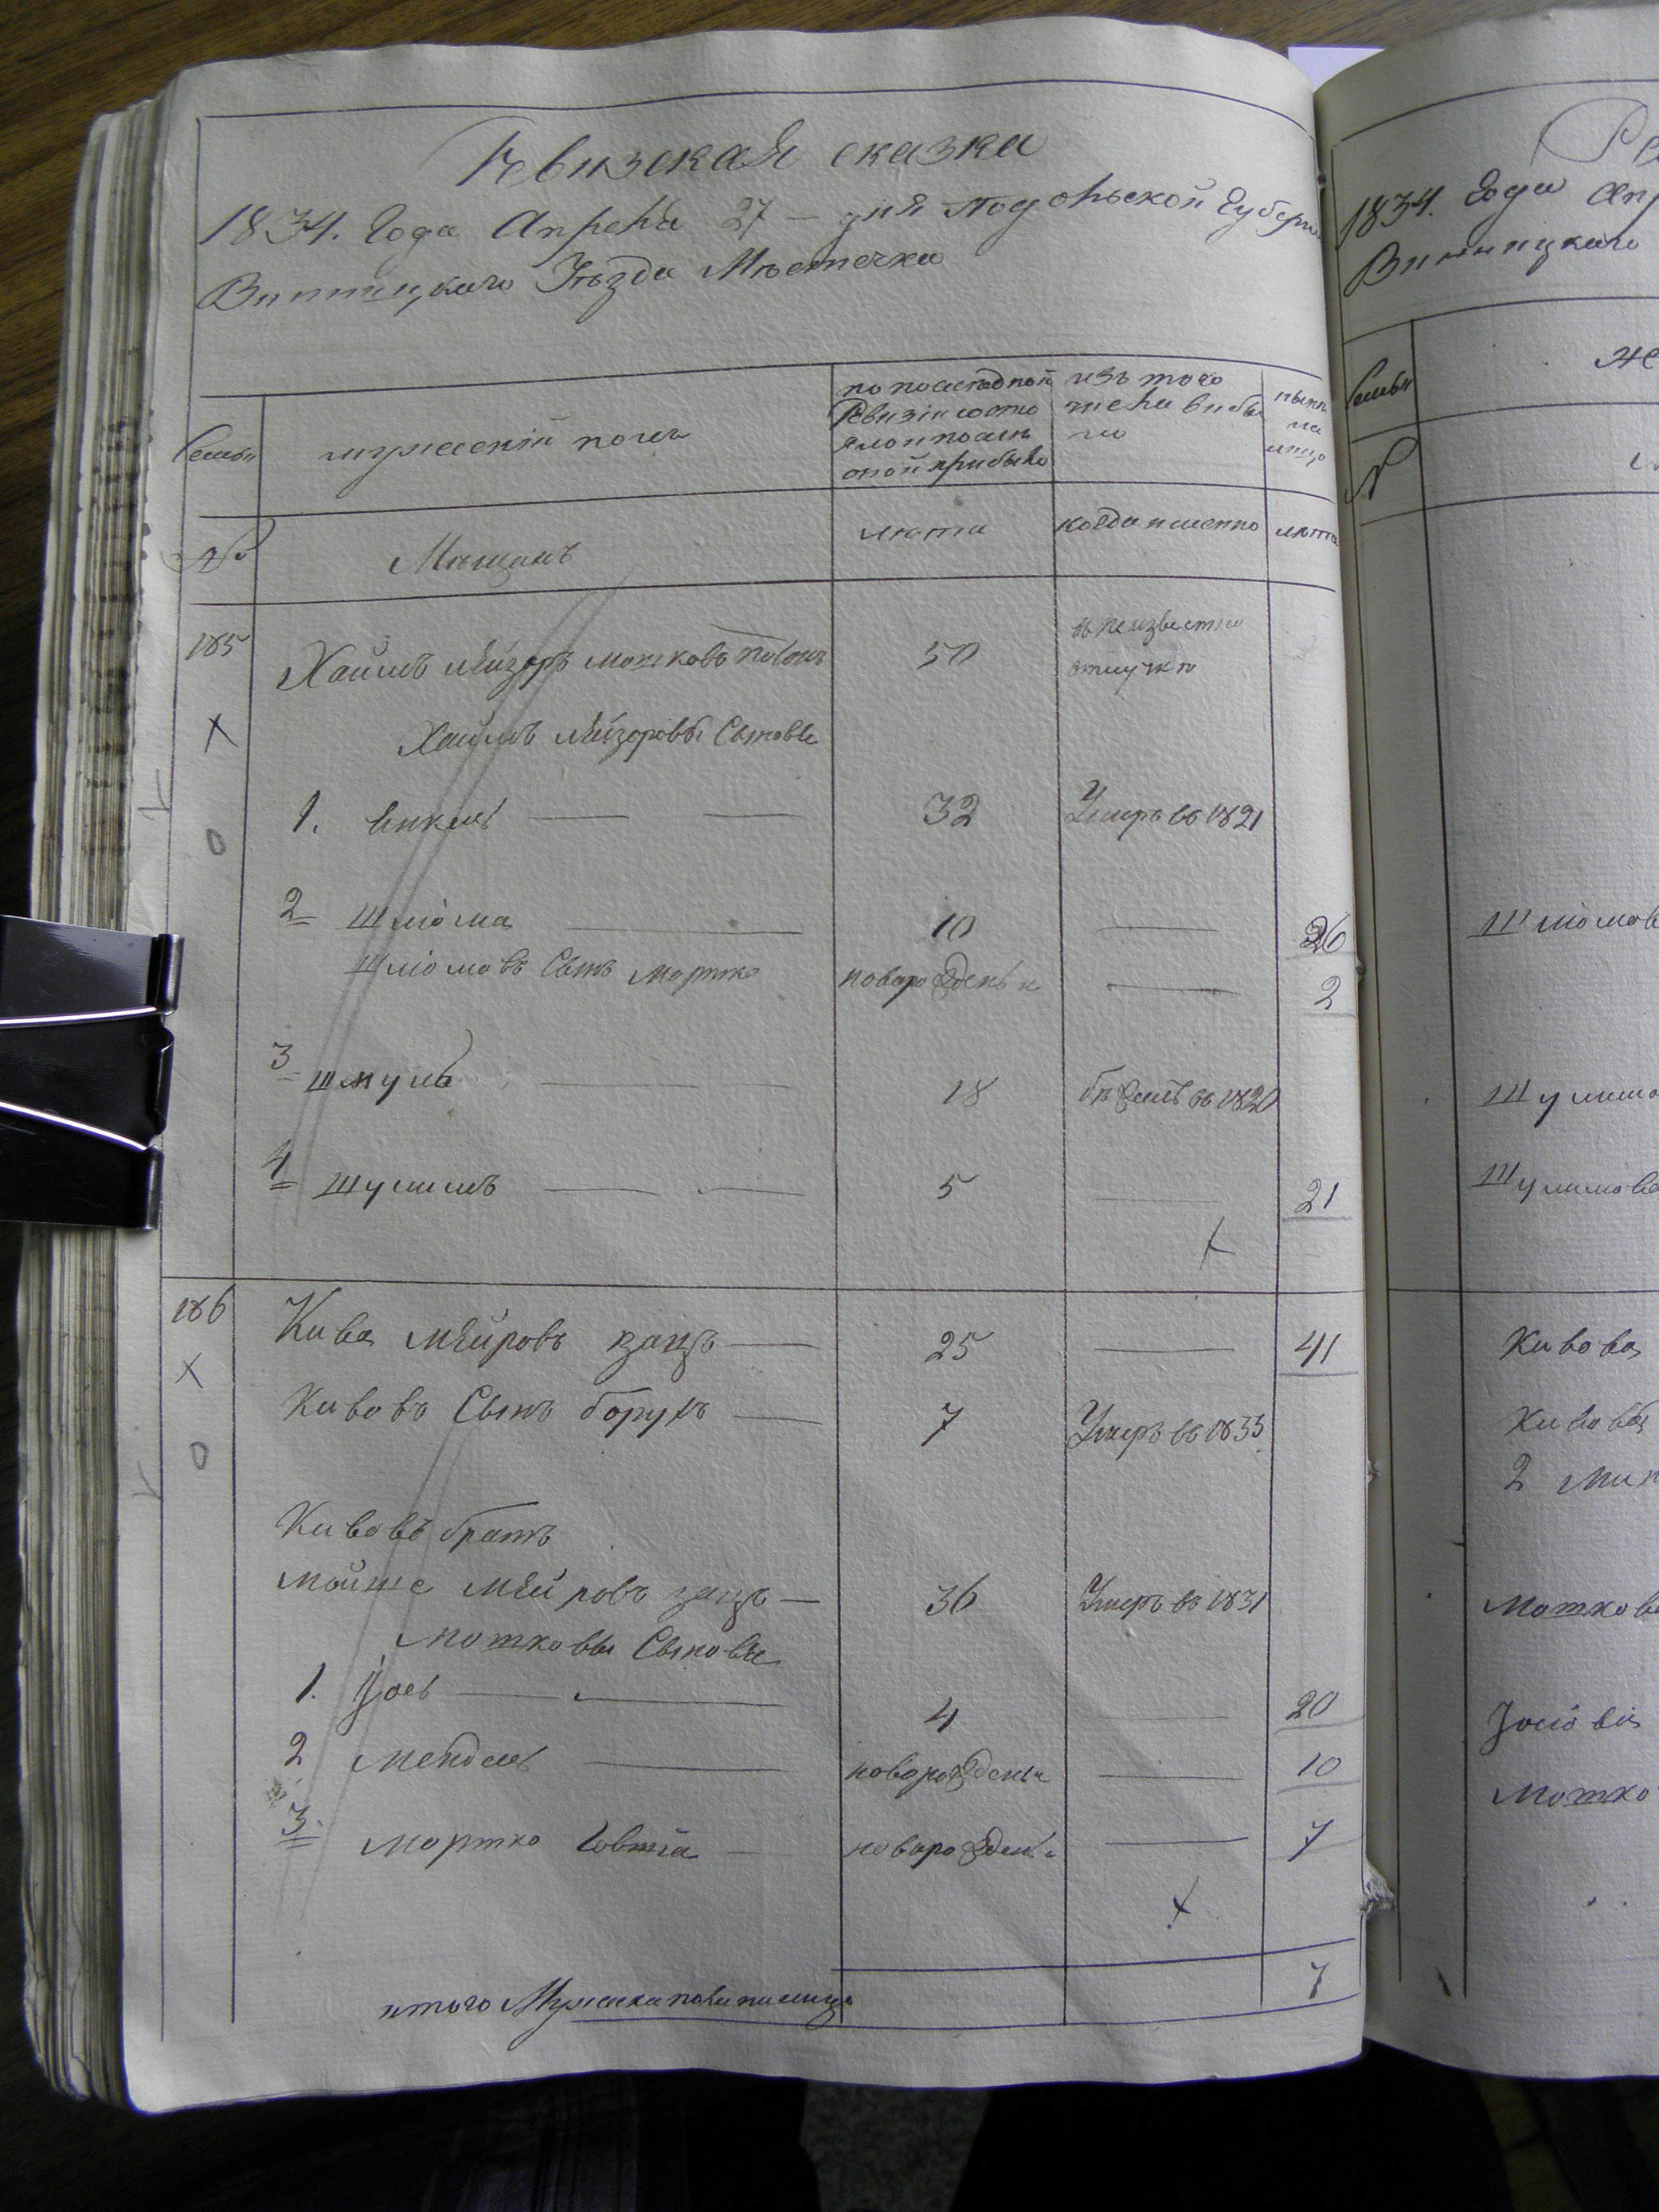 Ревизская сказка
1834. Года Апреля 27 – дня Подольской Губернии
Винницкаго Уѣзда Мѣстечка
Семьи
мужескій полъ
по последней
Ревизіи состо
яло и после
оной прибыло
изъ того
числа выбы
ло
нынѣ
на
лицо
№
Мѣщанъ
лѣта
когда именно
лѣта
185
Хаимъ Лейзоръ Мошковъ
50
в неизвестной
отлучке
Хаимъ Лейзоровы Сыновья
1. Янкель
32
Умеръ въ 1821
2 Шліома
10
26
Шліомовъ Сынъ Мортко
новорожденъ
2
3 Шмуль
18
бежалъ въ 1820
4 Шулимъ
5
21
186
Кива Мейровъ
25
41
Кивовъ Сынъ Борухъ
7
Умеръ въ 1833
Кивовъ братъ
Мойше Мейровъ
36
Умеръ въ 1831
Мошковы Сыновья
1. Іось
4
20
2 Мендель
новорожденъ
10
3. Мортко
новорожденъ
7
итого Мужеска пола на лицо
7
1834. Года Апр
Винницкаго
Семьи
№
же
Шліомов
Шулимо
Шулимова
Кивова
Кивовы
2
Мошков
Іосіова
Мошко